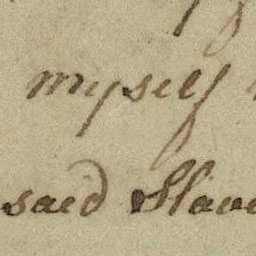 myself
said Slave